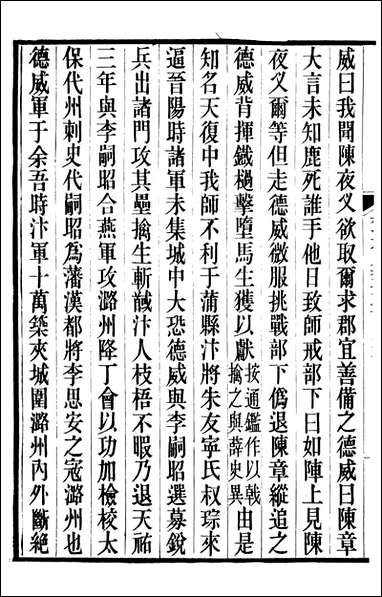 威曰我聞陳夜义欲取爾求郡宜善備之德威曰陳章
大言未知鹿死誰手他日致師戒部下曰如陣上見陳
夜义爾等但走德威微服挑戰部下僞退陳章縱追之
德威背揮鐵檛擊墮馬生獲以獻按通鑑作以戟擒之與薛史異由是
知名天復中我師不利于蒲縣汴將朱友寧氏叔琮來
逼晉陽時諸軍未集城中大恐德威與李嗣昭選募銳
兵出諸門攻其壘擒生斬馘汴人枝梧不暇乃退天祐
三年與李嗣昭合燕軍攻潞州降丁會以功加檢校太
保代州刺史代嗣昭爲藩漢都將李思安之寇潞州也
德威軍于余吾時汴軍十萬築夾城圍潞州內外斷絶